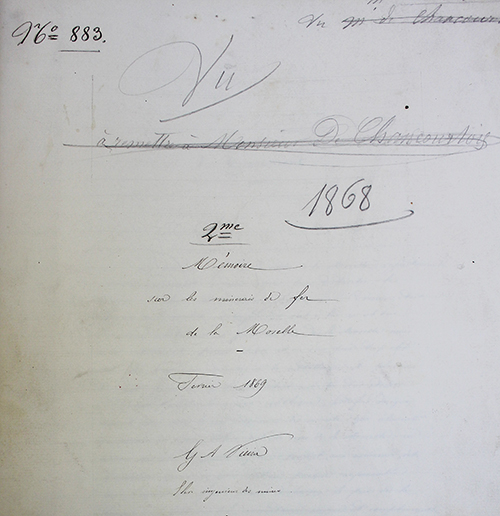 Vu Mr de Chancourtois
No 883.
Vu
à remettre à Monsieur De Chancourtois
1868
2me
Mémoire
sur les minerais de fer
de la Moselle
Février 1869
G A
ingénieur des mines